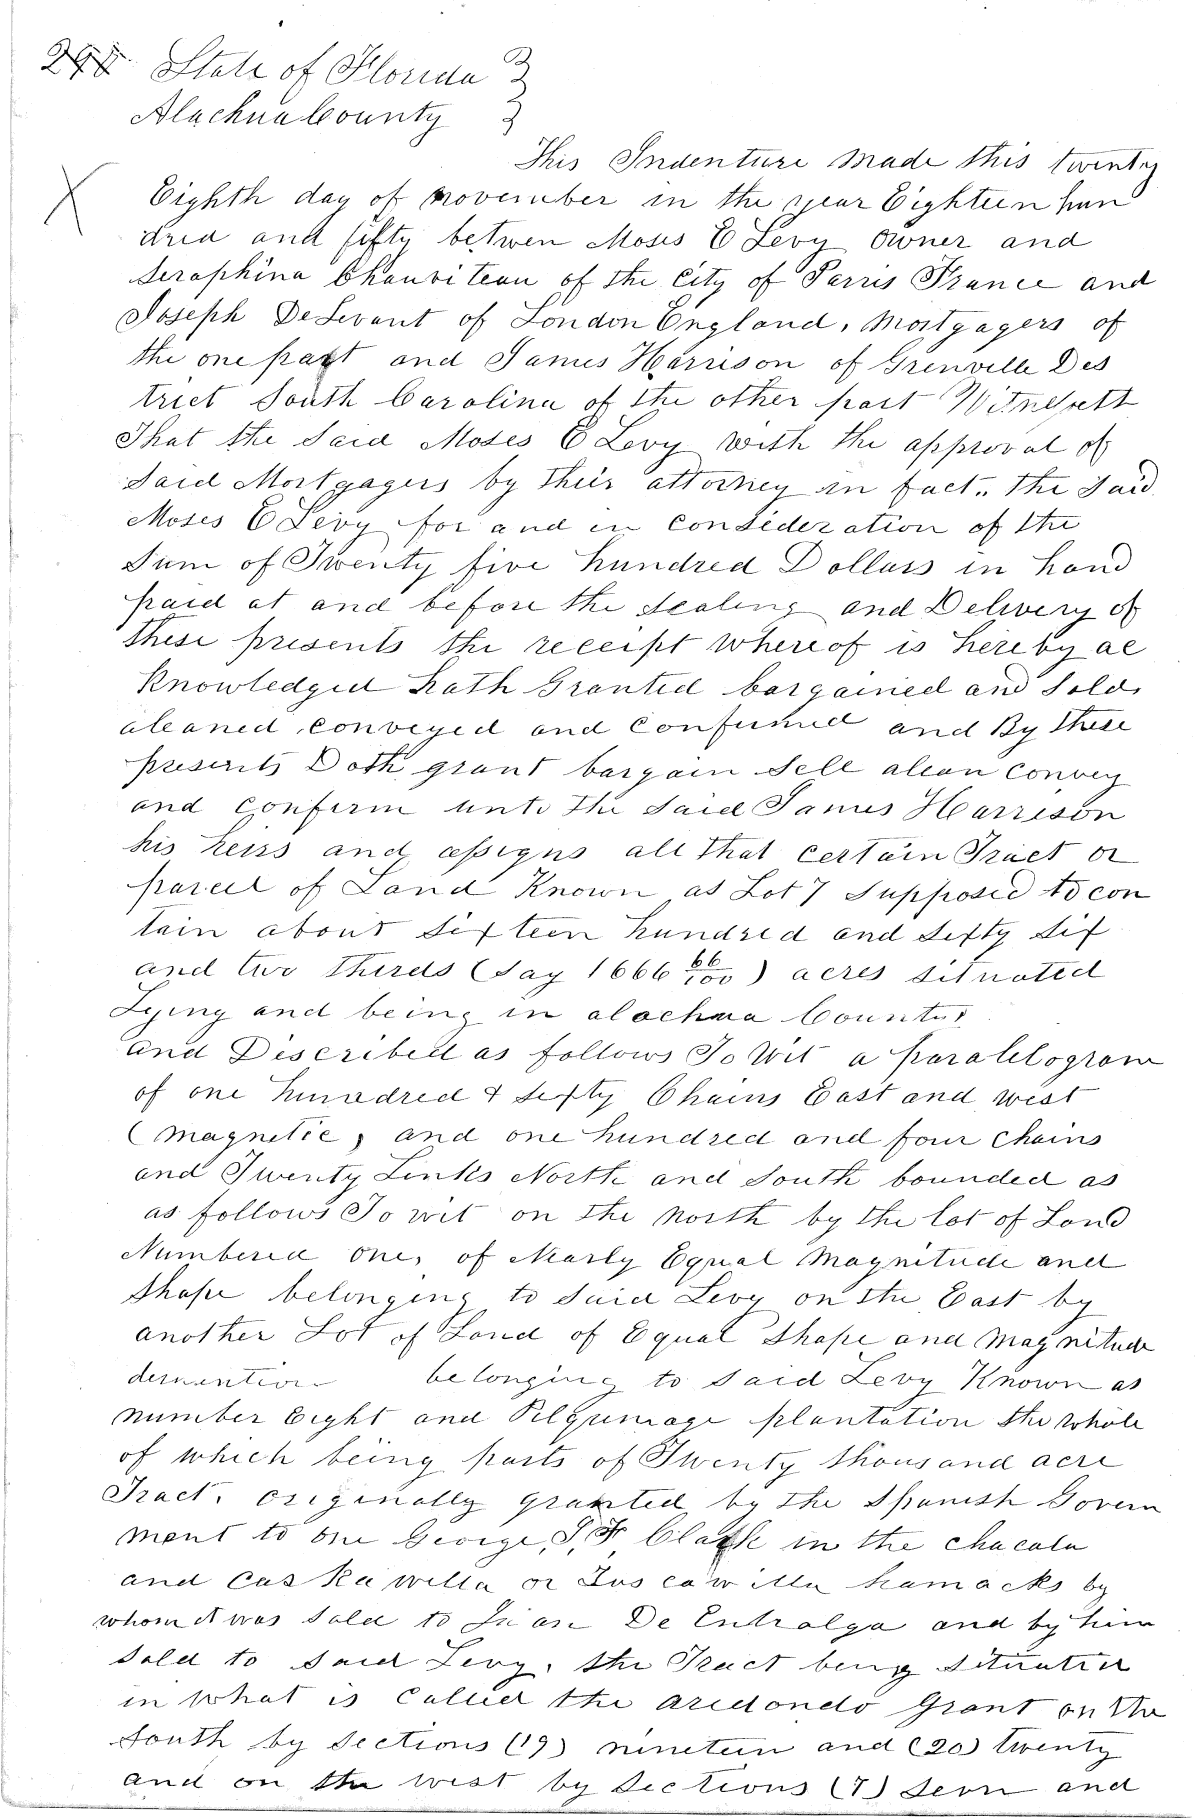 298 State of Florida }
Alachua County }
This Indenture made this twenty
Eighth day of november in the year Eighteen hun
dred and fifty betwen Moses E Levy owner and
Seraphina Chauviteau of the City of Parris France and
Joseph DeLevant of London England, Mortgagers of
the one part and James Harrison of Grenville Des
trict South Carolina of the other part Witnesseth
That the Said Moses E Levy with the approval of
Said Mortgagers by their attorney in fact., the Said
Moses E Levy for and in Consideration of the
Sum of Twenty five hundred Dollars in hand
paid at and before the Sealing and Delivery of
these presents the receipt whereof is hereby ac
Knowledged hath Granted bargained and Sold,
aleaned, conveyed and Confirmed and By these
presents Doth grant bargain Sell alean Convey
and Confirm unto the Said James Harrison
his heirs and assigns all that Certain Tract or
parcel of Land Known as Lot 7 Supposed to con
tain about Sixteen hundred and Sixty Six
and two thirds (Say 1666 66/100) acres Situated
Lying and being in alachua County
and Discribed as follows To Wit a paralelogram
of one hundred & Sixty Chains East and west
(magnetic, and one hundred and four Chains
and Twenty Links North and South bounded as
as follows To wit on the North by the lot of Land
Numbered one, of Nearly Equal Magnitude and
Shape belonging to Said Levy on the East by
another Lot of Land of Equal Shape and Magnitude
demention belonging to Said Levy Known as
number Eight and Pilgrimage plantation the whole
of which being parts of Twenty thousand acre
Tract, originally granted by the Spanish Govern
ment to one George J. F Clark in the Chacala
and Caskawilla or Tuscawilla hamacks by
whom it was Sold to Juan De Entralga and by him
Sold to Said Levy, the Tract being Situated
in what is Called the aredondo Grant on the
South by Sections (19) nineteen and (20) twenty
and on the west by Sections (7) Sevn and